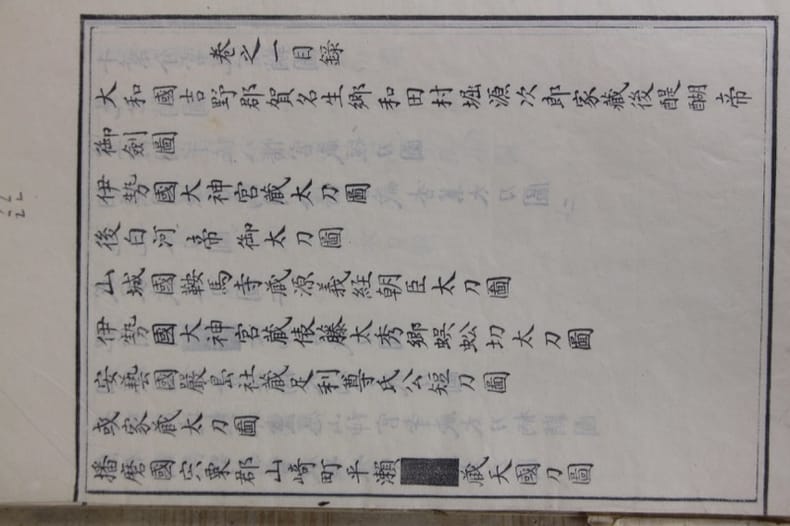 卷之一目錄
大和國吉野郡賀名生鄉和田村堀源次郎家藏後醍醐帝
御劍圖
伊勢國大神宮藏太刀圖
後白河帝御太刀圖
山城國鞍馬寺藏源義経朝臣太刀圖
伊勢國大神宮藏俵藤太秀鄉蜈蚣切太刀圖
安藝國嚴島社藏足利尊氏公短刀圖
或家藏太刀圖
播磨國宍粟郡山崎町平瀬藏天國刀圖